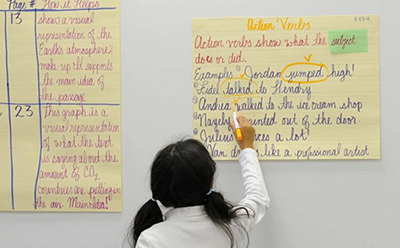 Page # How it Helps
13 shows a visual
representation of the
Earth's atmosphere
make up. It supports
the main idea of
the passage
23 This graph is a
visual representation
of what the text
is saying about the
amount of CO2
countries are putting in
the air. Main Idea!
Action Verbs
Action verbs show what the subject
does or did.
Examples Jordan jumped high!
Fidel talked to Hendry
Andrea walked to the ice cream shop
Nayely out of the door.
Julius a lot
Van like a professional artist